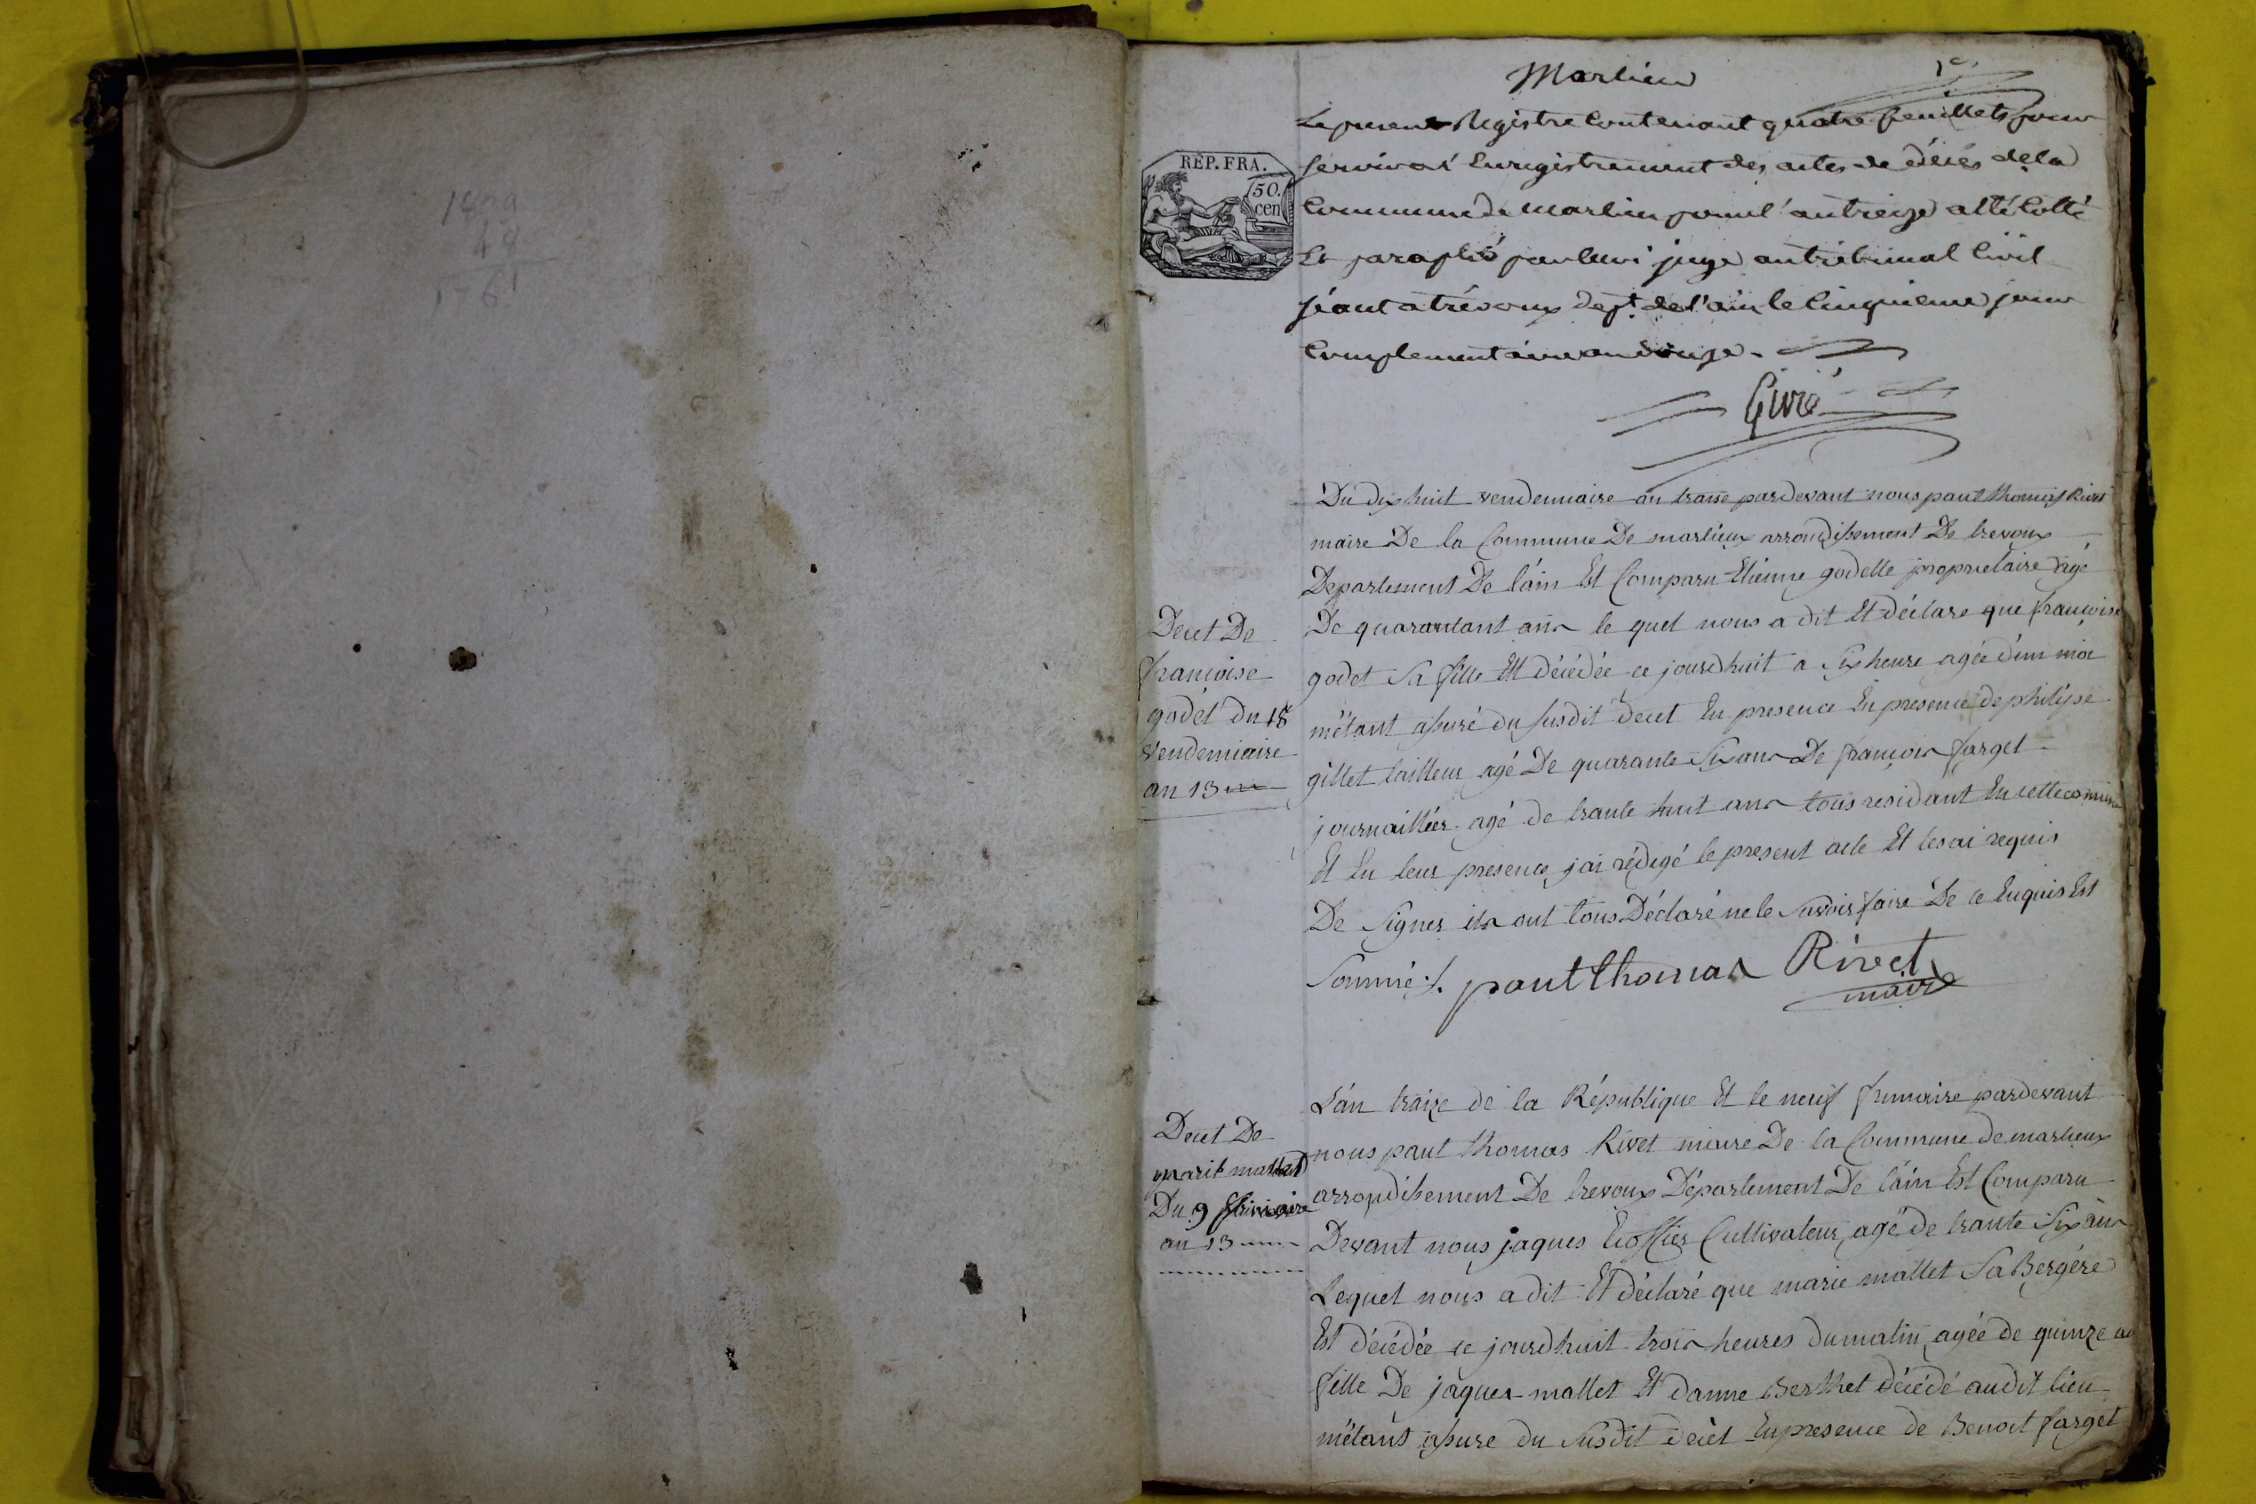 1829
1761
Marlieu
1er
RÉP. FRA.
50.
cen
Le present Registre Contenant quatre feuillets pour
servir a l'enregistrement des actes de décés de la
Commune de Marlieu pour l'an treize a été Cotté
Et paraphé par nous juge au tribunal Civil
séant a trévoux dept. de l'ain le Cinquieme jour
Complementaire an douze.
Du dix huit vendemiaire an traize pardevant nous paul thomas Rivet
maire De la Commune De marlieux arrondisement De trevoux
Departement De l'ain Est Comparu Etienne godelle proprietaire agé
De quarantant ans le quel nous a dit Et déclare que françoise
godet sa fille Est décédée ce jourdhuit a six heure agée d'un moi
m'étant assuré du susdit decet En presence En presence de philipe
gillet tailleur agé De quarante six ans De françois farget
journaillier agé de trante huit ans tous residant En cette comune
Et En leur presence j'ai rédigé le present acte Et les ai requis
De signer ils ont tous Déclaré ne le savoir faire De ce Enquis Est
Sommé ./. paul thomas Rivet
maire
Decet De
françoise
godet du 18
vendemiaire
an 13
L'an traize de la République Et le neuf frimaire pardevant
nous paul thomas Rivet maire De la Commune de marlieux
arrondisement De trevoux Département De l'ain Est Comparu
Devant nous jaques Cultivateur agé de trante six ans
Lequel nous a dit Et déclaré que marie mallet Sa Bergére
Est décédée ce jourdhuit trois heures du matin agée de quinze an
fille De jaques mallet Et danne Berthet décédé audit lieu
m'étant assure du susdit decet En presence de Benoit farget
Decet De
marie mallet
Du 9 frimaire
an 13